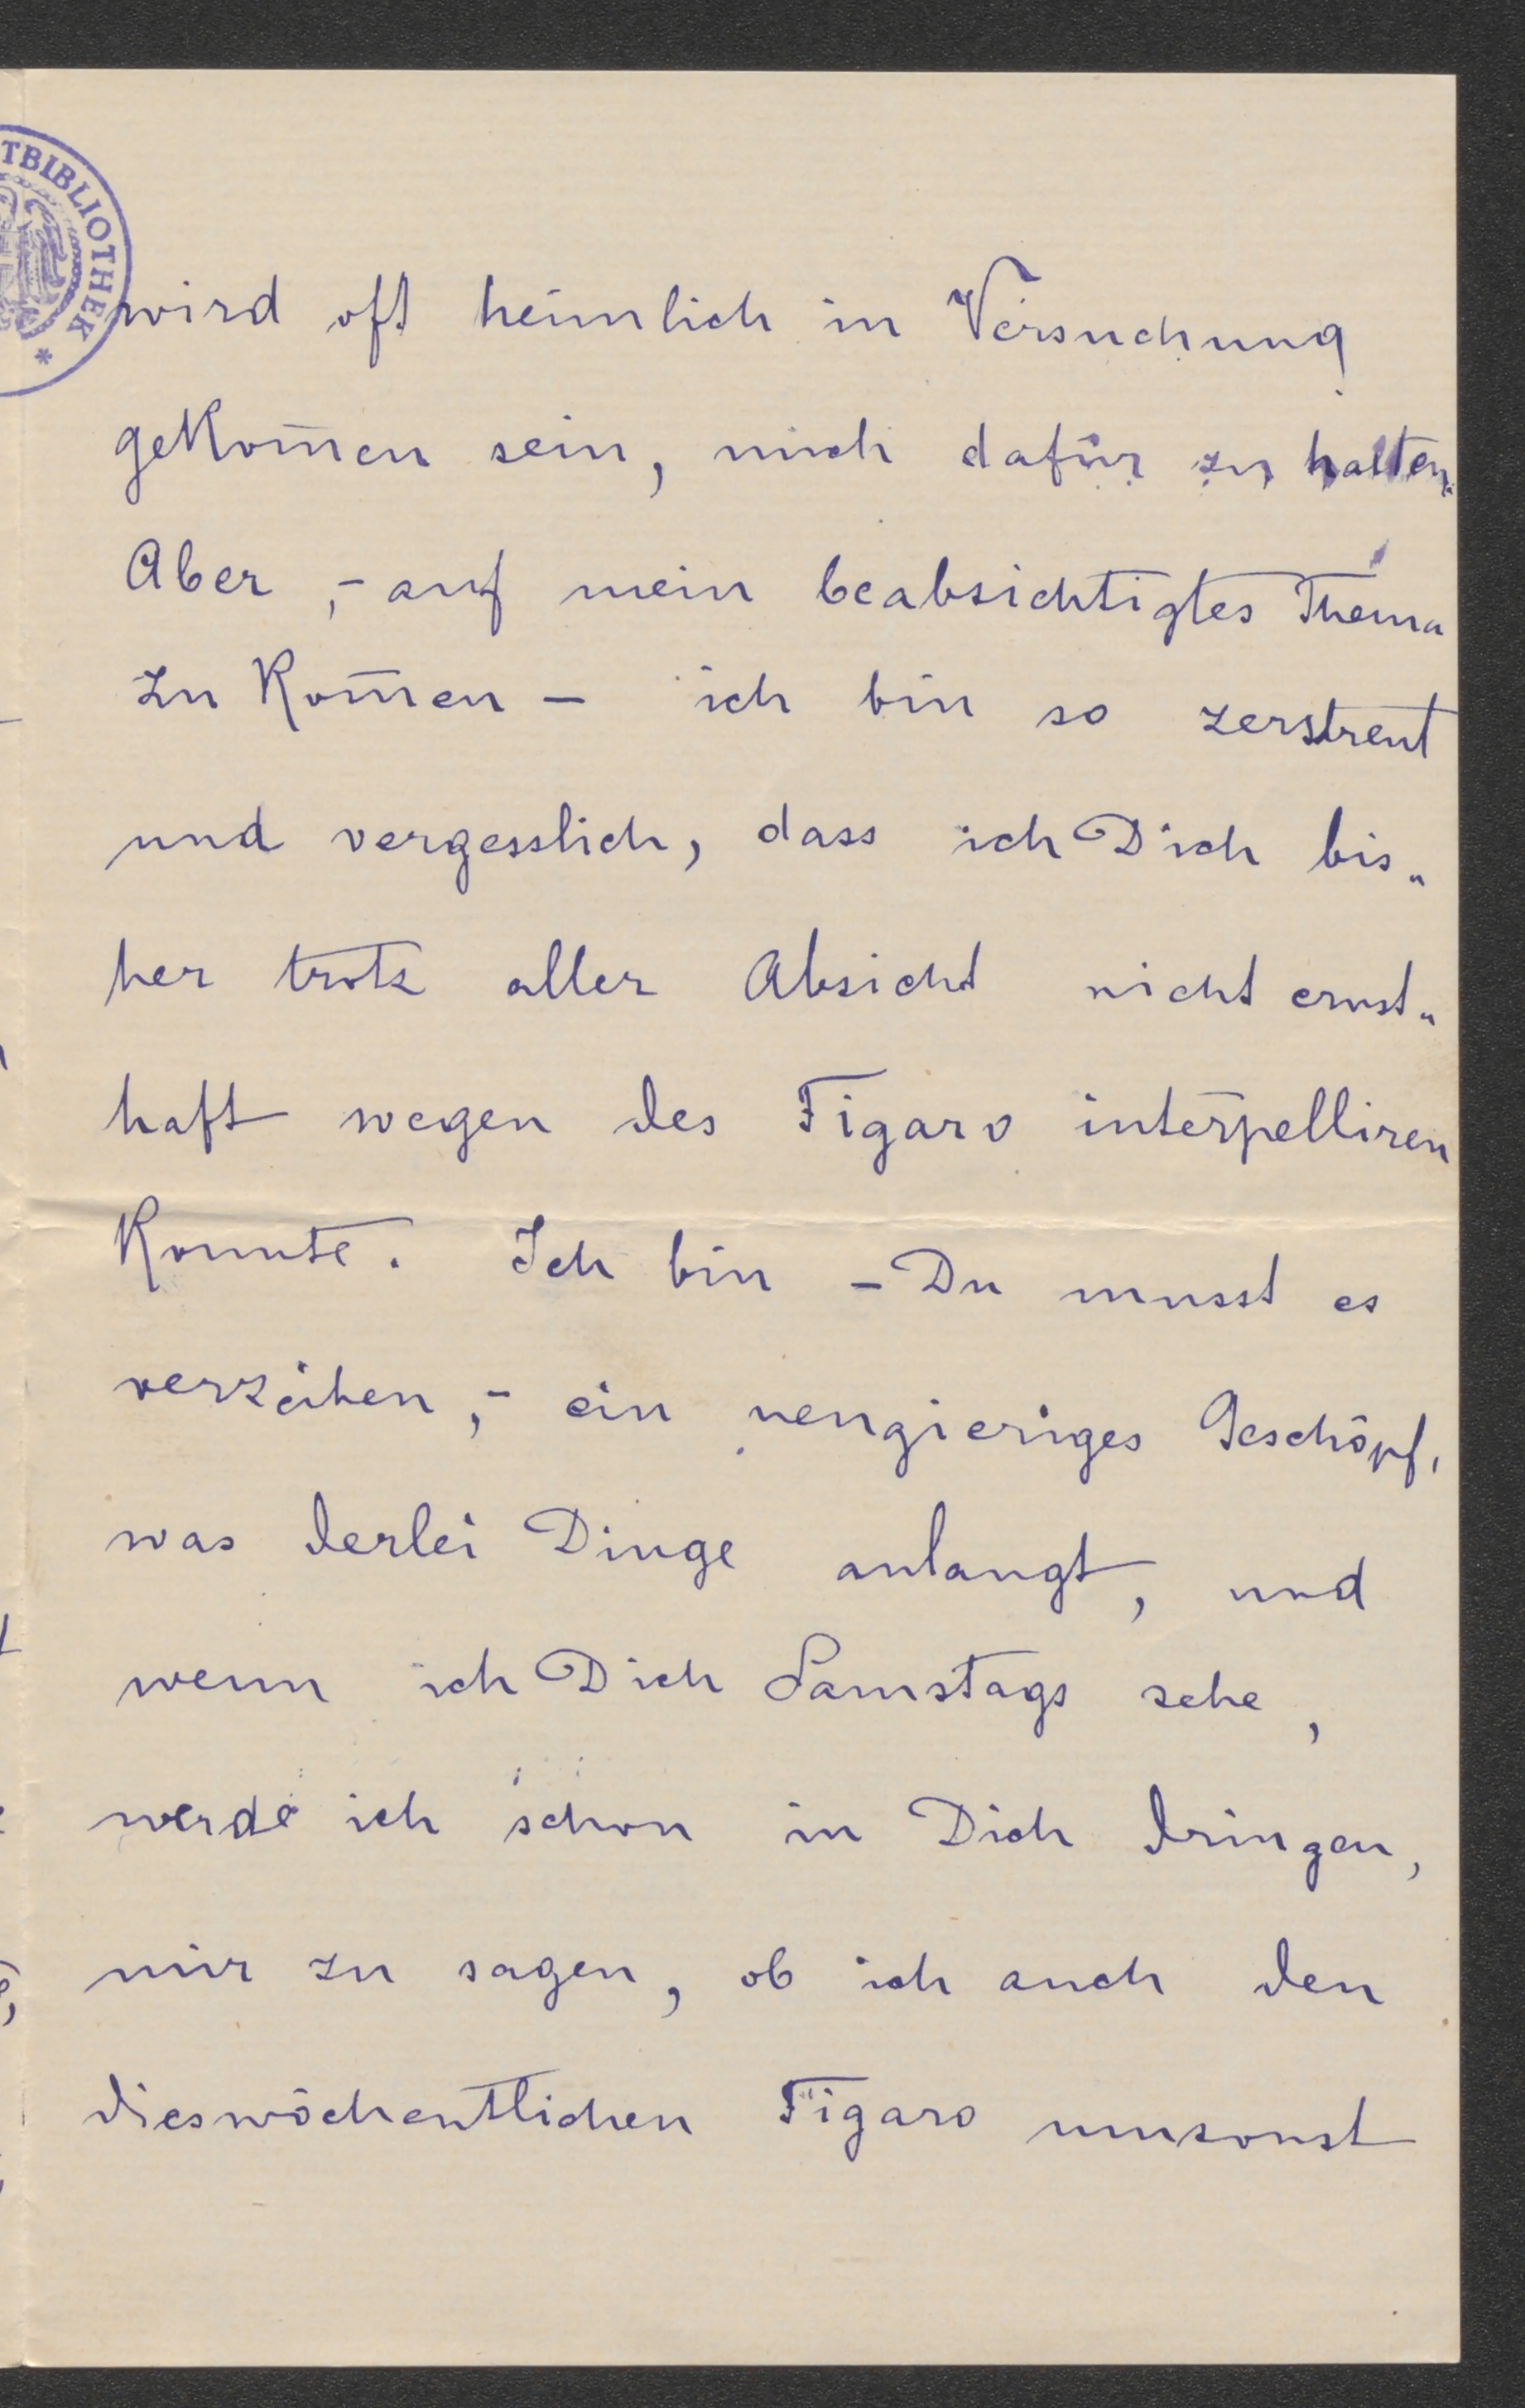 TBIBLIOTHEK *
wird oft heimlich in Versuchung
gekom̅en sein, mich dafür zu halten.
Aber, - auf mein beabsichtigtes Thema
zu kom̅en - ich bin so zerstreut
und vergesslich, dass ich Dich bis„
her trotz aller Absicht nicht ernst„
haft wegen des Figaro interpelliren
konnte. Ich bin - Du musst es
verzeihen, - ein neugieriges Geschöpf,
was derlei Dinge anlangt, und
wenn ich Dich Samstags sehe,
werde ich schon in Dich dringen,
mir zu sagen, ob ich auch den
dieswöchentlichen Figaro umsonst